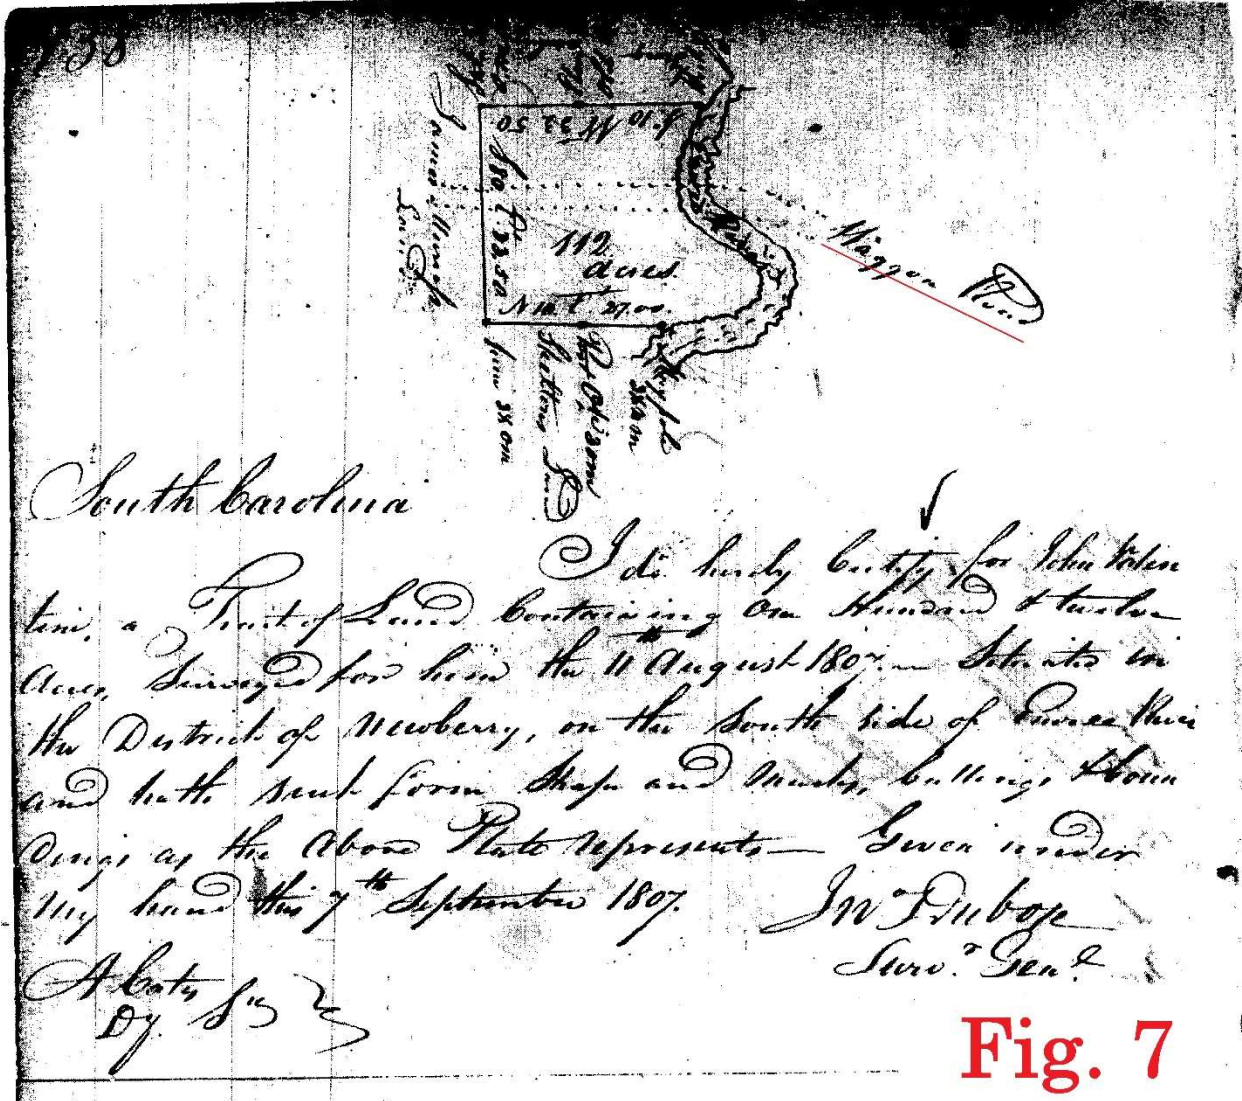 138
S 10 W 33.50
S 80 E 33.50
112
acres
N 10 E 27.00
Waggon Road
James
Land
Post Oak 3XOm
Skeltons Land
pine 3XOm
3XOm
South Carolina
I do herdy Certify for John Valen
tine, a Tract of Land Containing One Hundred & twelve
Acres, Surveyed for him the 11th August 1807 — Situate in
the District of Newberry, on the South Side of Enoree River
and hath such form Shape and Marks, buttings & boun
dings as the Above Platt represents — Given under
My hand this 7th September 1807.
Jno Dubose
Survr. Genl.
A Cates
Dy. Sr
Fig. 7